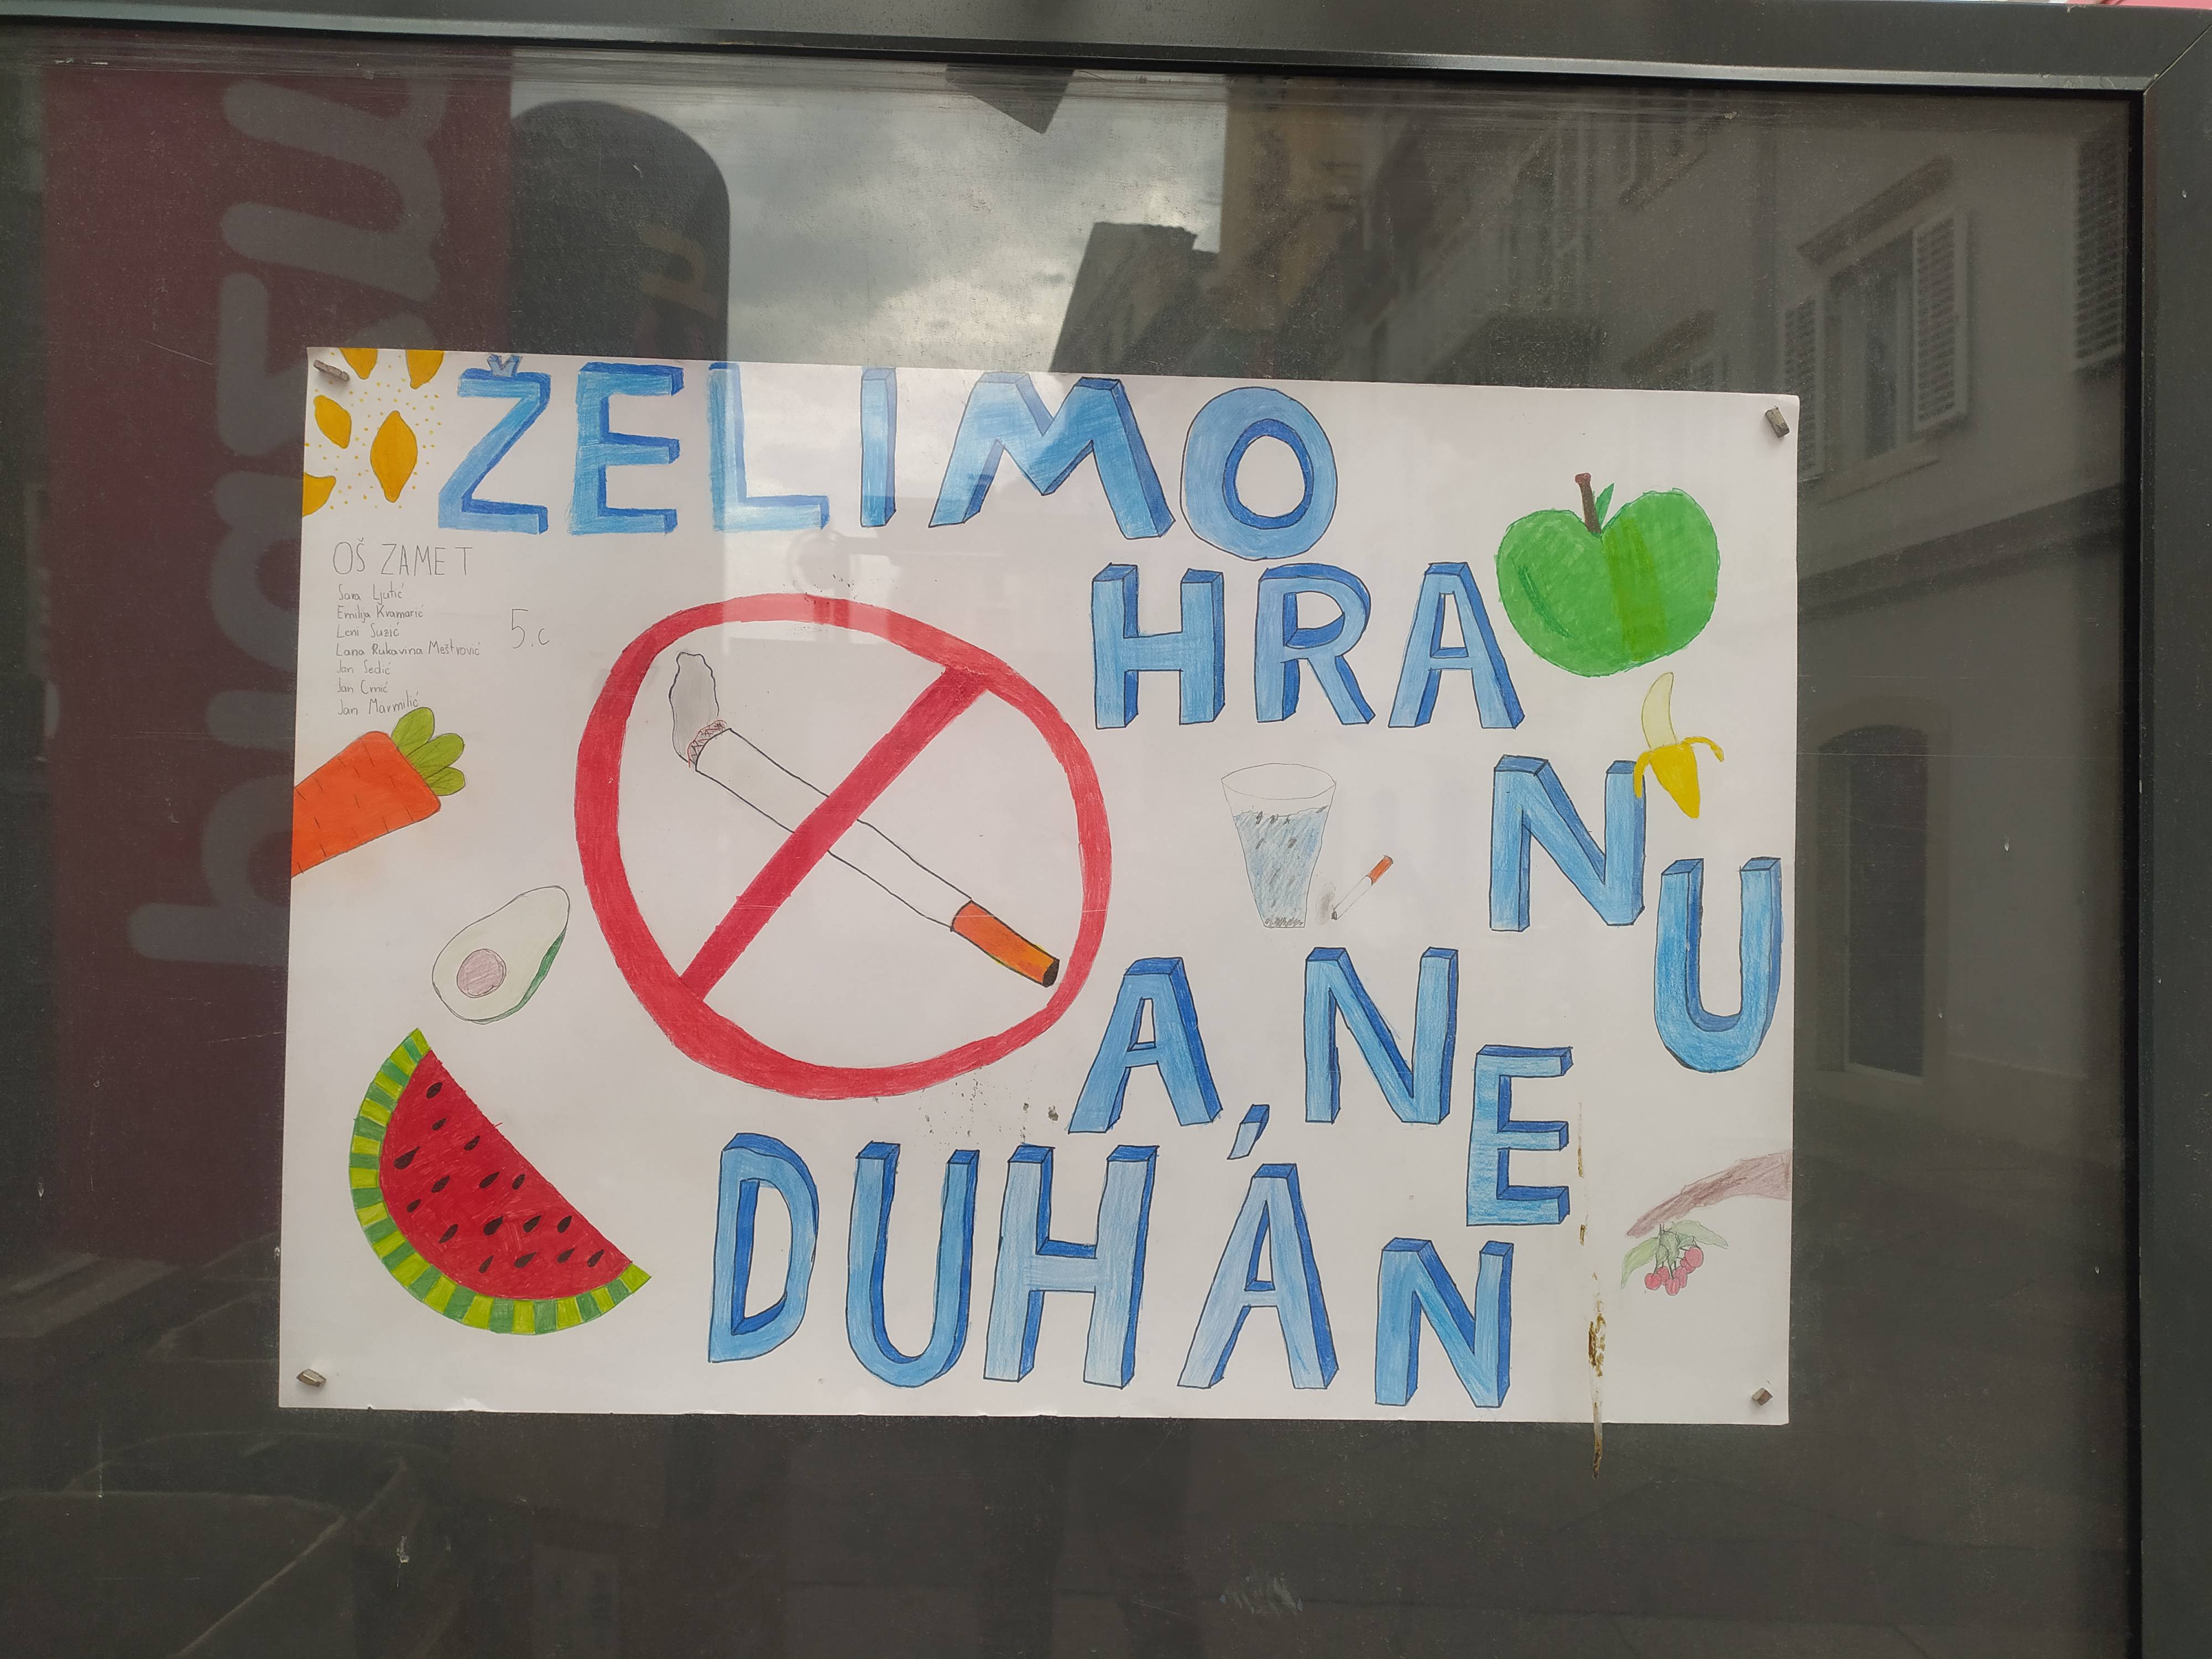 ŽELIMO
HRA
NU
A, NE
DUHAN
OŠ ZAMET
Sara Ljutić
Emilija Kramarić
Leni Suzić
Lana Rukavina Meštrović
Jan Sedić
Jan Crnić
Jan Marmilić
5.c